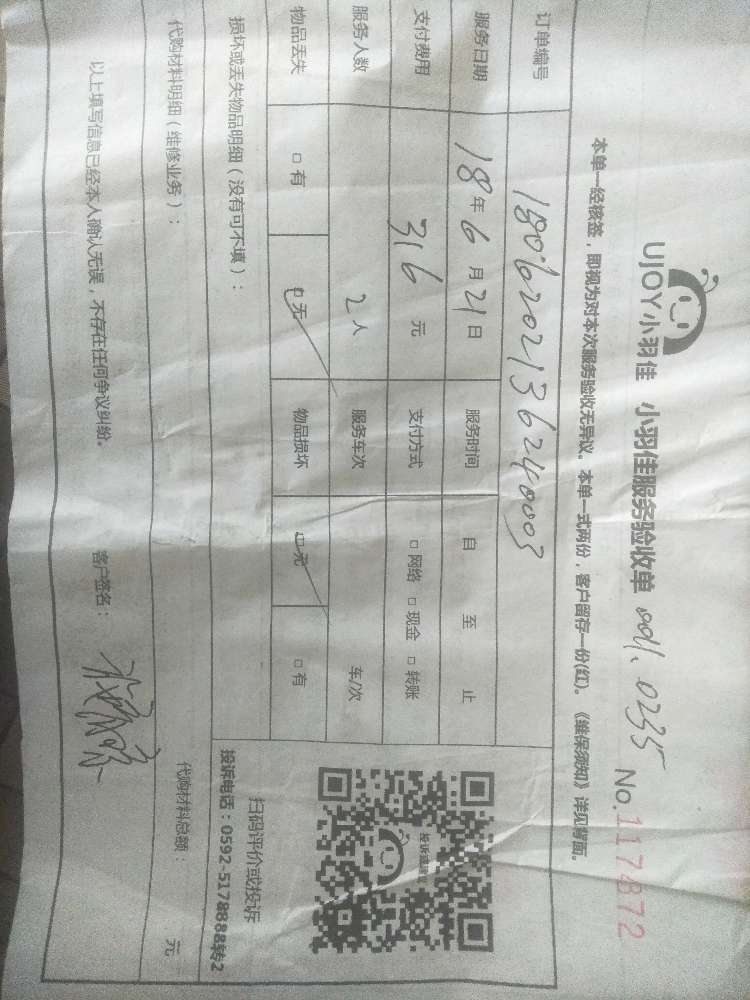 UJOY小羽佳 小羽佳服务验收单 No.117872
本单一经核签，即视为对本次服务验收无异议。本单一式两份，客户留存一份(红)。《维保须知》详见背面。
订单编号 1806202136240003
服务日期 18年6月21日 服务时间 自 至 止
支付费用 316元 支付方式 □网络 □现金 □转账
服务人数 2人 服务车次 车/次
物品丢失 □有 □无 物品损坏 □无 □有
损坏或丢失物品明细（没有可不填）：
投诉或建议
扫码评价或投诉
投诉电话：0592-5178888转2
代购材料明细（维修业务）： 代购材料总额： 元
以上填写信息已经本人确认无误，不存在任何争议纠纷。 客户签名：